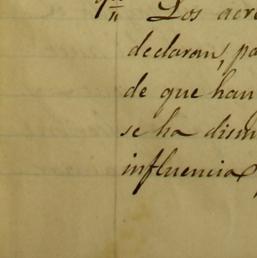 Los acre
declaran, pa
de que han
se ha dism
influencia,